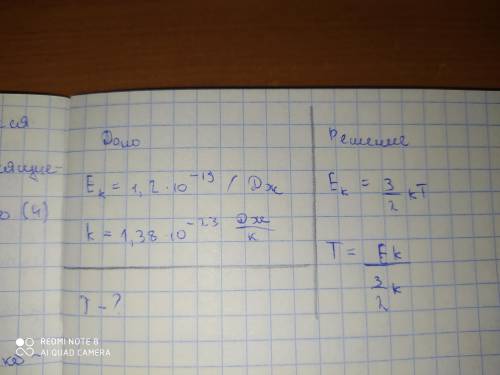 ся
ящие-
о (4)
Дано
E_k = 1,2 · 10^-19 / Дж
k = 1,38 · 10^-23 Дж/к
T - ?
Решение
E_k = 3/2 kT
T = Ek / (3/2 k)
REDMI NOTE 8
AI QUAD CAMERA